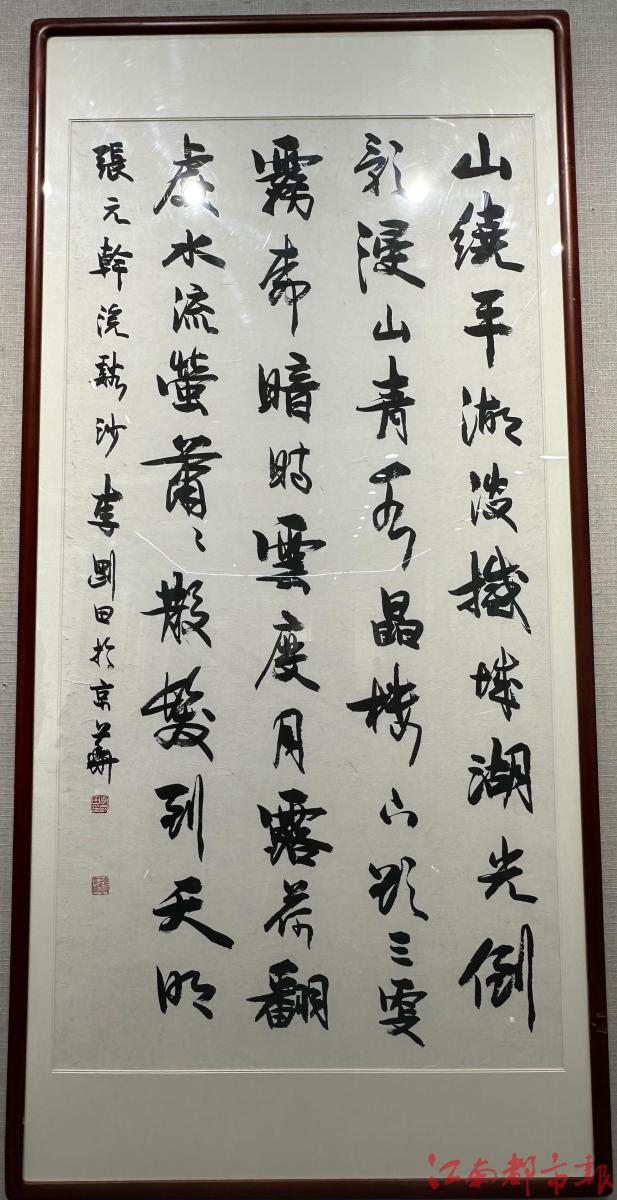 山繞平湖波撼城湖光倒
影浸山青水晶樓下欲三更
霧柳暗時雲度月露荷翻
處水流螢蕭〻散髮到天明
張元幹浣谿沙李剛田於京華
江南都市報